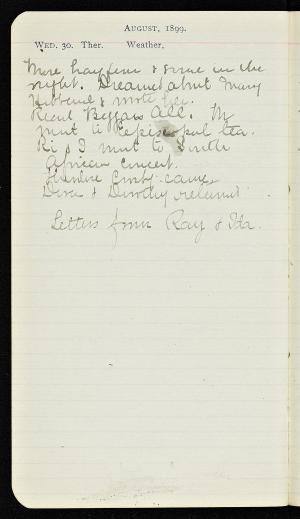 AUGUST, 1899.
WED. 30. Ther. Weather,
More hayfever & some in the
night. Dreamed about Mary
& wrote her.
Read Beggars All. M
went to Episcopal tea.
Ri & I went to South
African Concert.
came
Dora & Dorothy returned.
Letters from Ray & Ida.